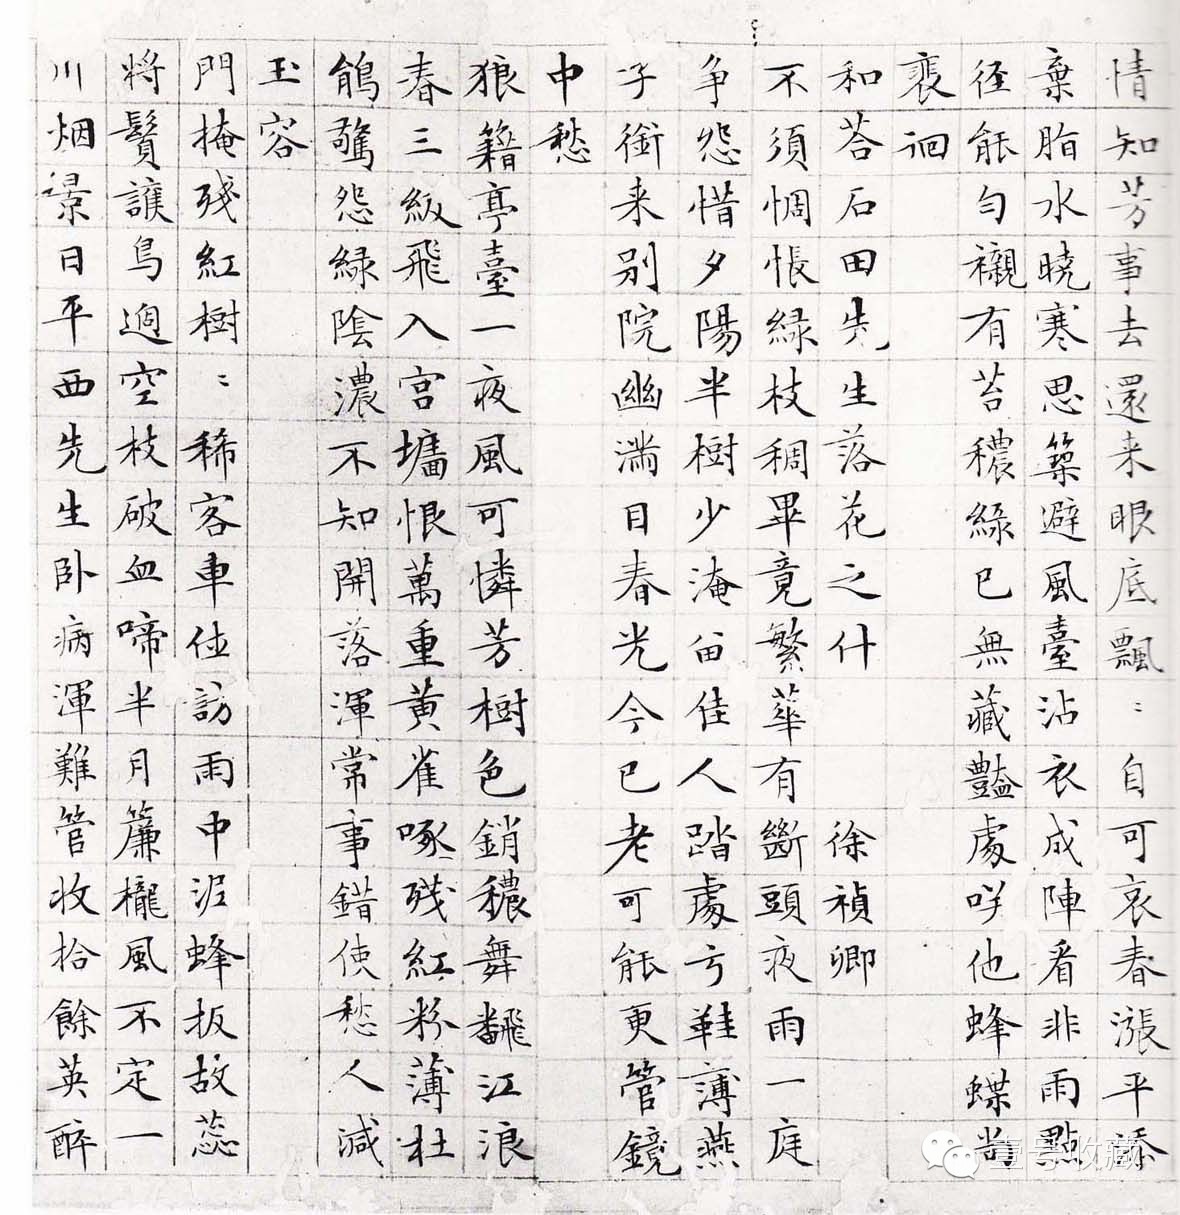 情知芳事去還来眼底飄〻自可哀春漲平添
棄脂水曉寒思築避風臺沾衣成陣看非雨點
径能勻襯有苔穠綠已無藏豔處咲他蜂蝶尚
裵徊
和荅石田先生落花之什 徐禎卿
不須惆悵綠枝稠畢竟繁華有斷頭夜雨一庭
争怨惜夕陽半樹少淹畱佳人踏處弓鞋薄燕
子銜来别院幽滿目春光今已老可能更管鏡
中愁
狼籍亭臺一夜風可憐芳樹色銷穠舞飜江浪
春三級飛入宫墻恨萬重黄雀啄殘紅粉薄杜
鵑驚怨緑陰濃不知開落渾常事錯使愁人減
玉容
門掩殘紅樹〻稀客車住訪雨中泥蜂扳故蕊
將鬚護鳥遶空枝破血啼半月簾櫳風不定一
川烟景日平西先生卧病渾難管收拾餘英醉
壹号收藏